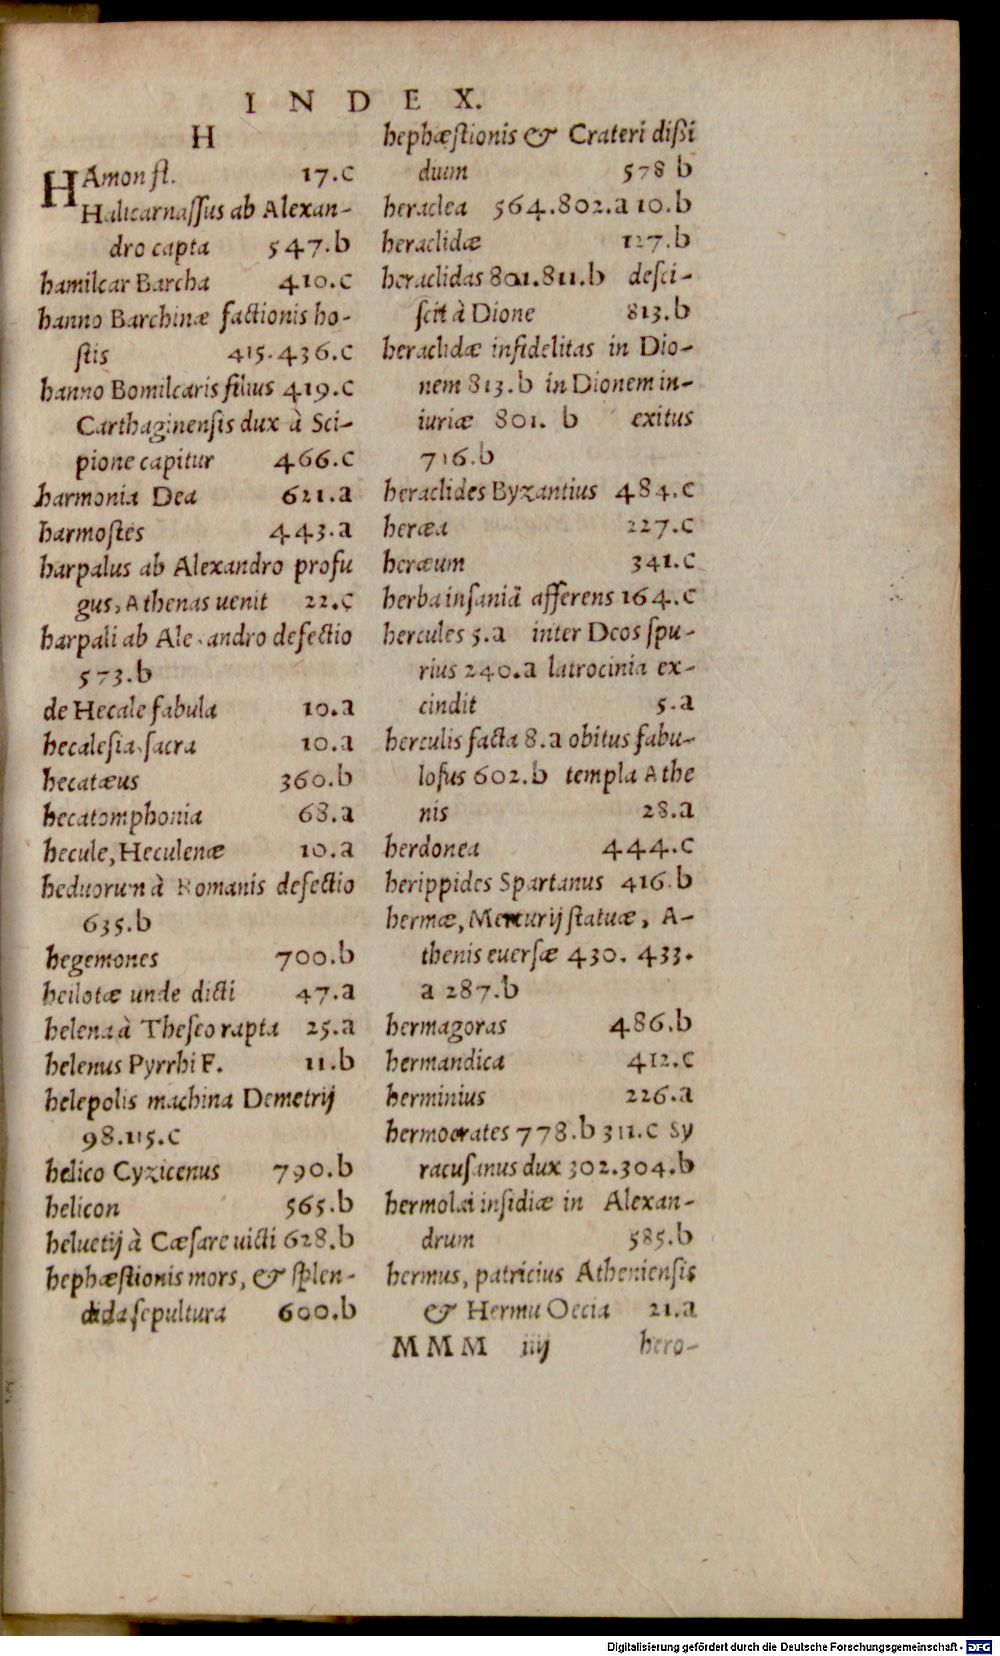 INDEX.
H
HAmon fl. 17.c
Halicarnaſſus ab Alexan-
dro capta 547.b
hamilcar Barcha 410.c
hanno Barchinæ factionis ho-
ſtis 415.436.c
hanno Bomilcaris filius 419.c
Carthaginenſis dux à Sci-
pione capitur 466.c
harmonia Dea 621.a
harmoſtes 443.a
harpalus ab Alexandro profu
gus, Athenas uenit 22.c
harpali ab Alexandro defectio
573.b
de Hecale fabula 10.a
hecaleſia, ſacra 10.a
hecatæus 360.b
hecatomphonia 68.a
hecule, Heculenæ 10.a
heduorum à Romanis defectio
635.b
hegemones 700.b
heilotæ unde dicti 47.a
helena à Theſeo rapta 25.a
helenus Pyrrhi F. 11.b
helepolis machina Demetrij
98.115.c
helico Cyzicenus 790.b
helicon 565.b
heluetij à Cæſare uicti 628.b
hephæſtionis mors, & ſplen-
dida ſepultura 600.b
hephæſtionis & Crateri diſsi
dium 578 b
heraclea 564.802.a 10.b
heraclidæ 127.b
heraclidas 801.811.b deſci-
ſcit à Dione 813.b
heraclidæ infidelitas in Dio-
nem 813.b in Dionem in-
iuriæ 801. b exitus
716.b
heraclides Byzantius 484.c
heræa 227.c
heræum 341.c
herba inſaniā afferens 164.c
hercules 5.a inter Deos ſpu-
rius 240.a latrocinia ex-
cindit 5.a
herculis facta 8.a obitus fabu-
loſus 602.b templa Athe
nis 28.a
herdonea 444.c
herippides Spartanus 416.b
hermæ, Mercurij ſtatuæ, A-
thenis euerſæ 430. 433.
a 287.b
hermagoras 486.b
hermandica 412.c
herminius 226.a
hermocrates 778.b 311.c Sy
racuſanus dux 302.304.b
hermolai inſidiæ in Alexan-
drum 585.b
hermus, patricius Athenienſis
& Hermu Oecia 21.a
MMM iiij hero-
Digitalisierung gefördert durch die Deutsche Forschungsgemeinschaft - DFG